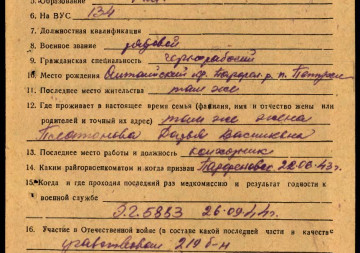 5. Образование
6. На ВУС 134
7. Должностная квалификация
8. Военное звание рядовой
9. Гражданская специальность чернорабочий
10. Место рождения Алтайский кр.
11. Последнее место жительства там же
12. Где проживает в настоящее время семья (фамилия, имя и отчество жены или
родителей и точный их адрес) там же жена
Платонова Дарья
13. Последнее место работы и должность колхозник
14. Каким райгорвоенкоматом и когда призван
15. Когда и где проходил последний раз медкомиссию и результат годности к
военной службе
Э.Г. 5883 26.09.44г.
16. Участие в Отечественной войне (в составе какой последней части и качестве
участвовал 219 б-н